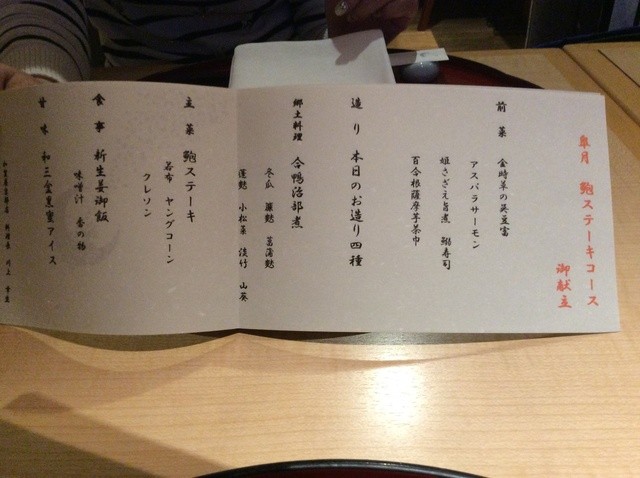 皐月 鮑ステーキコース
御献立
前菜 金時草の英並富
アスパラサーモン
姫さざえ旨煮 鯛寿司
百合根薩摩芋茶巾
造り 本日のお造り四種
郷土料理 合鴨治部煮
冬瓜 簾麩 菖蒲麩
蓬麩 小松菜 淡竹 山葵
主菜 鮑ステーキ
若布 ヤングコーン
クレソン
食事 新生姜御飯
味噌汁 香の物
甘味 和三盆黒蜜アイス
料理長 川上